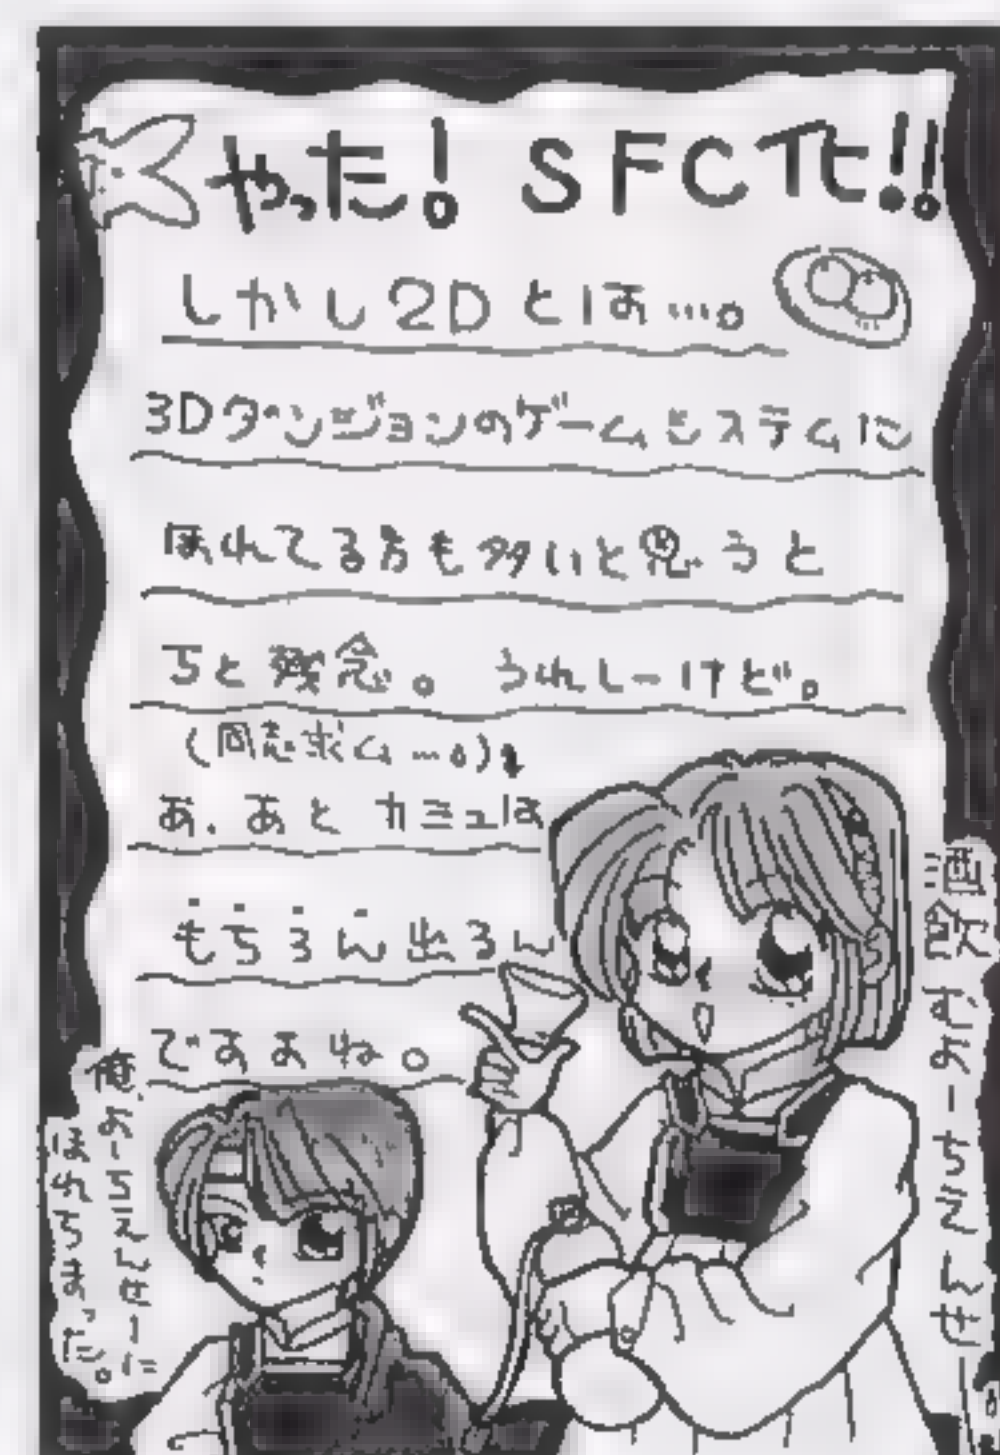 やった! SFC化!!
しかし2Dとは…。
3Dダンジョンのゲームシステムに
ほれてる方も多いと思うと
ちと残念。うれしーけど。
(同志求ム…。)
あ.あとカミュは
もちろん出るん
ですよね。
酒飲むのーちえんせー
俺、のーちえんせーに
ほれちまった。